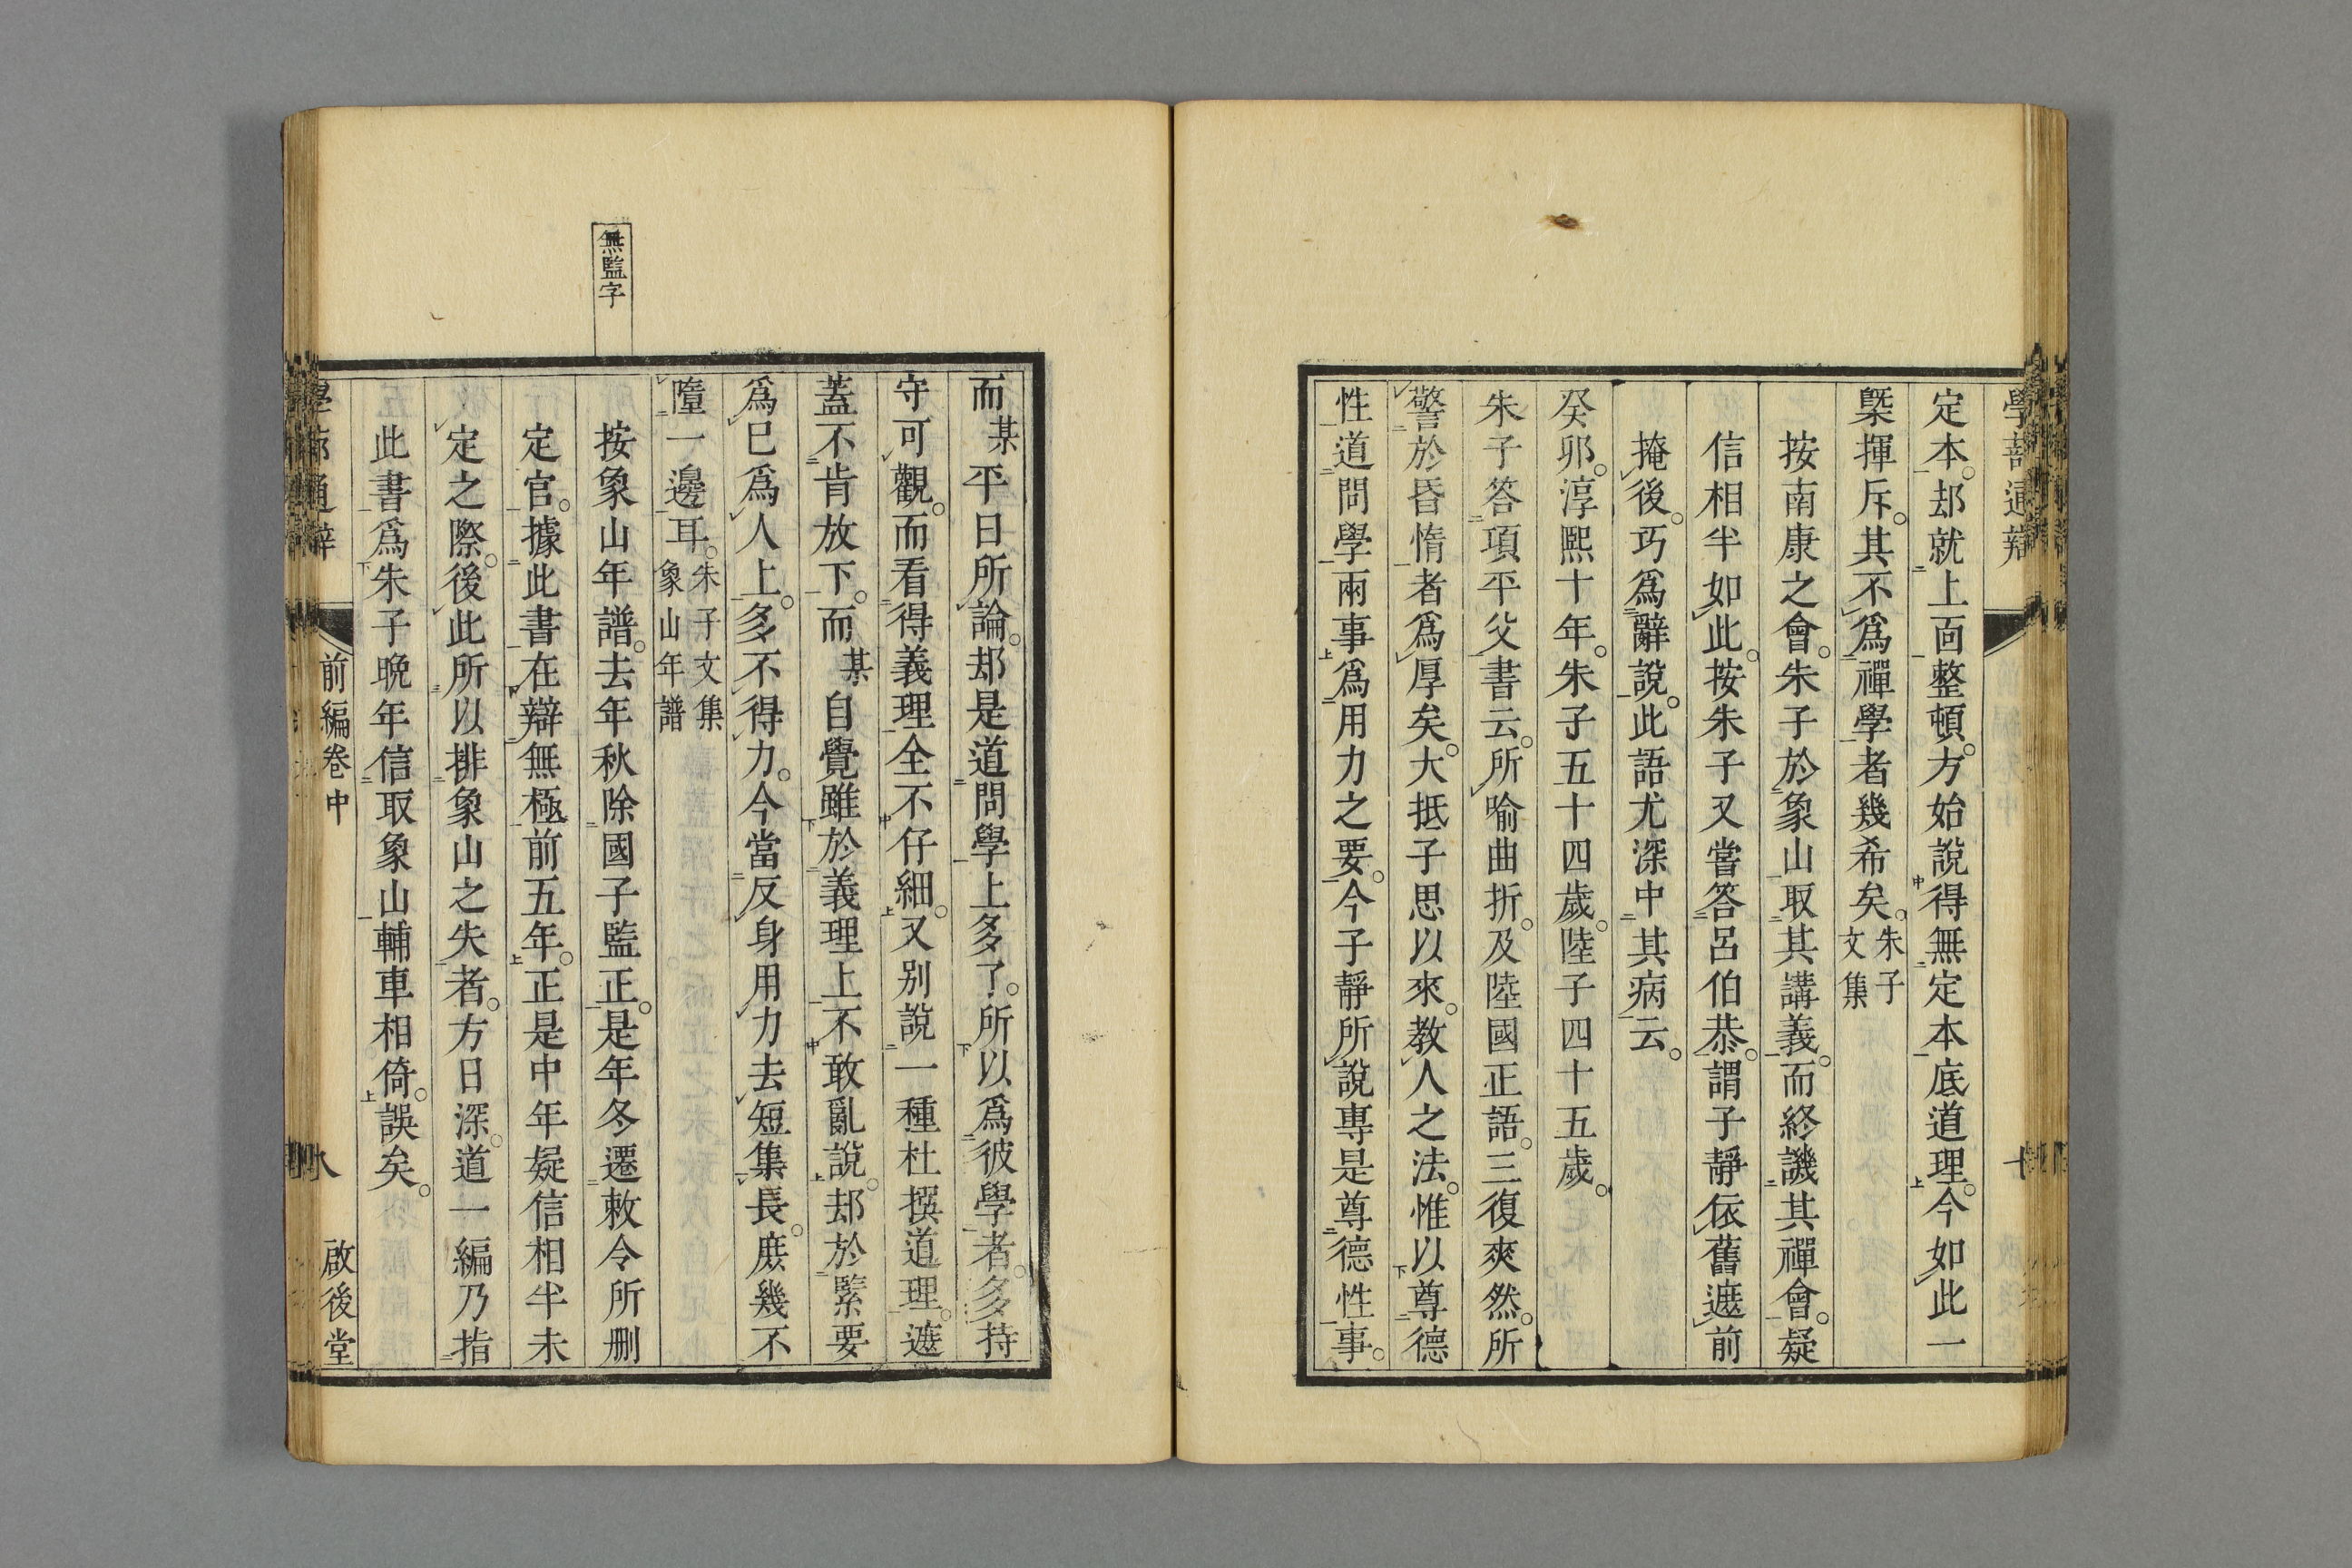 定本。却就上面整頓。方始說得無定本底道理。今如此一
槩揮斥。其不爲禪學者幾希矣。朱子文集
按南康之會。朱子於象山取其講義。而終譏其禪會。疑
信相半如此。按朱子又嘗答呂伯恭。謂子靜依舊遮前
掩後。巧爲辭說。此語尤深中其病云。
癸卯。淳熙十年。朱子五十四歲。陸子四十五歲。
朱子答項平父書云。所喻曲折。及陸國正語。三復爽然。所
警於昏惰者爲厚矣。大抵子思以來。教人之法。惟以尊德
性道問學兩事爲用力之要。今子靜所說專是尊德性事。
而某平日所論。却是道問學上多了。所以爲彼學者。多持
守可觀。而看得義理全不仔細。又別說一種杜撰道理。遮
蓋不肯放下。而某自覺雖於義理上不敢亂說。却於緊要
爲巳爲人上。多不得力。今當反身用力去短集長。庶幾不
墮一邊耳。朱子文集象山年譜
無監字
按象山年譜。去年秋除國子監正。是年冬遷敕令所删
定官。據此書在辯無極前五年。正是中年疑信相半未
定之際。後此所以排象山之失者。方日深。道一編乃指
此書爲朱子晚年信取象山輔車相倚。誤矣。
前編卷中
八
啟後堂